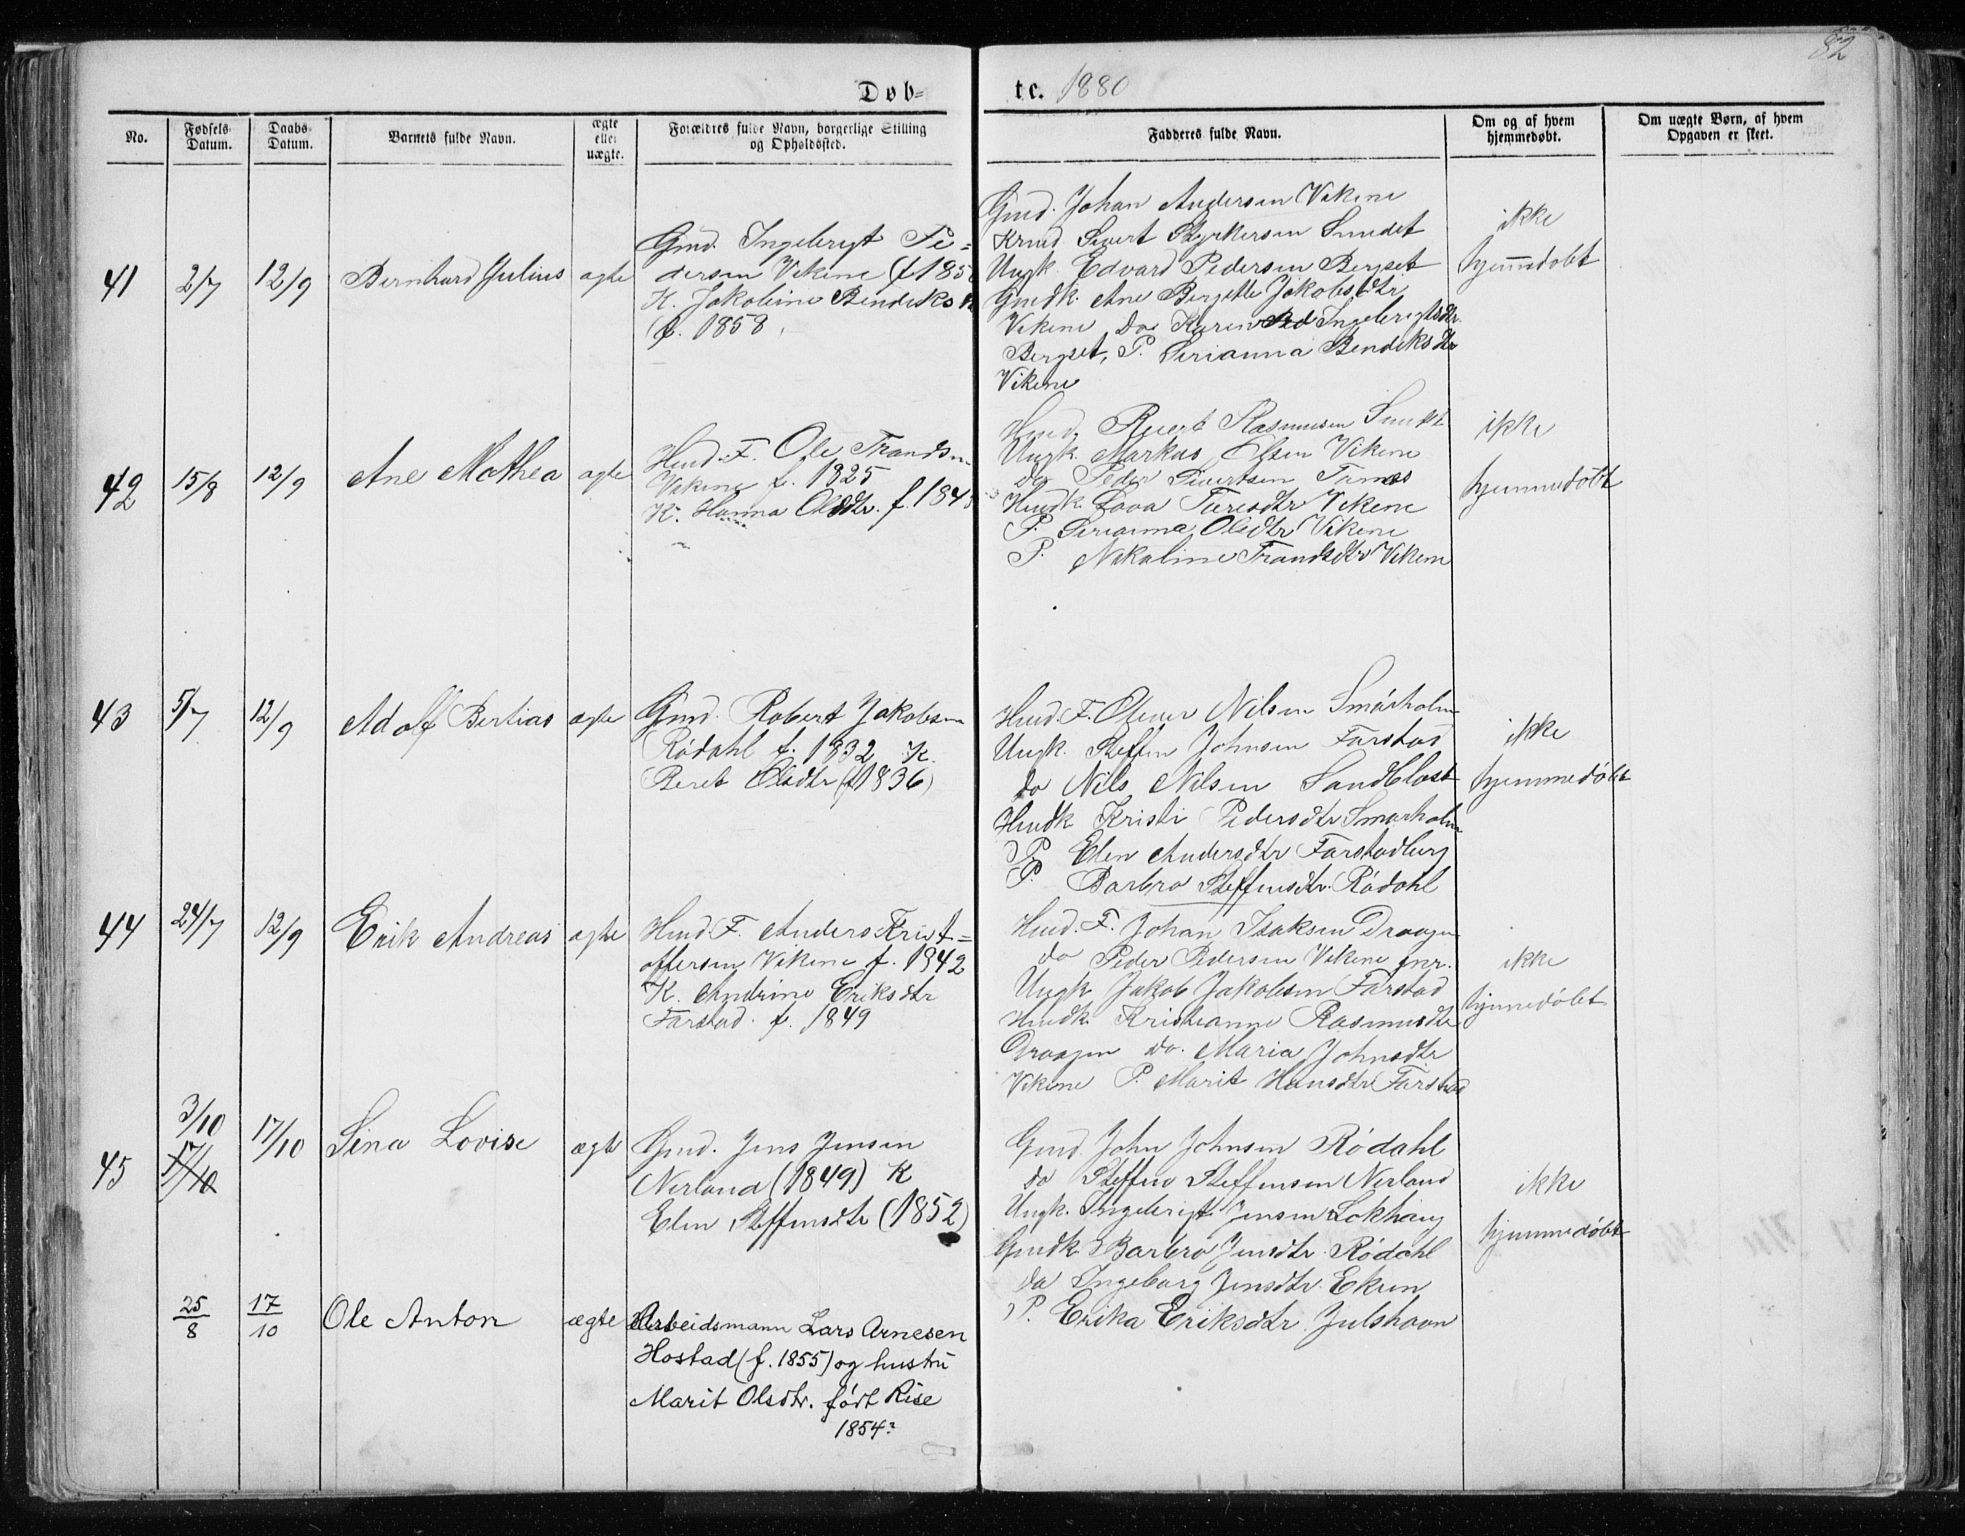 82
Døb-
te. 1880
No.
Fødsels Datum.
Daabs Datum.
Barnets fulde Navn.
ægte eller uægte.
Forældres fulde Navn, borgerlige Stilling og Opholdssted.
Fadderes fulde Navn.
Om og af hvem hjemmedøbt.
Om uægte Børn, af hvem Opgaven er skeet.
41 2/7 12/9 Bernhard Julius ægte
Gmd. Ingebrigt Pe-
dersen Vikene (f 185
K. Jakobine Bendiks
(f. 1858
Gmd. Johan Andersen Vikene
Sivert Styrkersen Smedet
Ungk. Edvard Pedersen Bergset
Gmdk. Ane Bergitte Jakobsdtr
Vikene do Karen Ingebrigtsdtr
Bergset, P. Serianna Bendiksdtr
Vikene
ikke
hjemmedøbt
42 15/8 12/9 Ane Mathea ægte
Hmd. F. Ole Trondsen
Vikene f. 1825
K. Hanna Olsdtr. f. 184
Hmd. Rasmusen
Ungk. Markus Olsen Vikene
do Peder Sivertsen
Hmdk. Vikene
P. Serianna Olsdtr Vikene
P. Nikoline Trondsdtr Vikene
ikke
hjemmedøbt
43 5/7 12/9 Adolf Bertias ægte
Gmd. Robert Jakobsen
Rødahl f. 1832 K.
Beret Olsdtr (f 1836)
Hmd. F. Nilsen Smørholm
Ungk. Steffen Johnsen Farstad
do Nils Nilsen Sandblost
Hmdk Kristi Pedersdtr Smørholm
P. Elen Andersdtr Farstadberg
P. Barbro Steffensdtr. Rødahl
ikke
hjemmedøbt
44 24/7 12/9 Erik Andreas ægte
Hmd. F. Anders Krist-
offersen Vikene f. 1842
K. Andrine Eriksdtr
Farstad. f. 1849
Hmd. F. Johan Isaksen Draagen
do Peder Pedersen Vikene
Ungk Jakob Jakobsen Farstad
Hmdk. Kristianne Rasmusdtr
Draagen do. Maria Johnsdtr
Vikene P. Marit Hansdtr Farstad
ikke
hjemmedøbt
3/10
45 17/10 17/10 Sina Lovise ægte
Gmd. Jens Jensen
Nerland (1849) K
Elen Steffensdtr (1852)
Gmd. John Johnsen Rødahl
do Steffen Steffensen Nerland
Ungk. Ingebrigt Jensen Lokhaug
Gmdk Barbro Jensdtr. Rødahl
do Ingeborg Jensdtr. Ekren
P. Erika Eriksdtr. Julshavn
ikke
hjemmedøbt
25/8 17/10 Ole Anton ægte
Arbeidsmann Lars Arnesen
Hostad (f. 1855) og hustru
Marit Olsdtr. født Rise
1854?